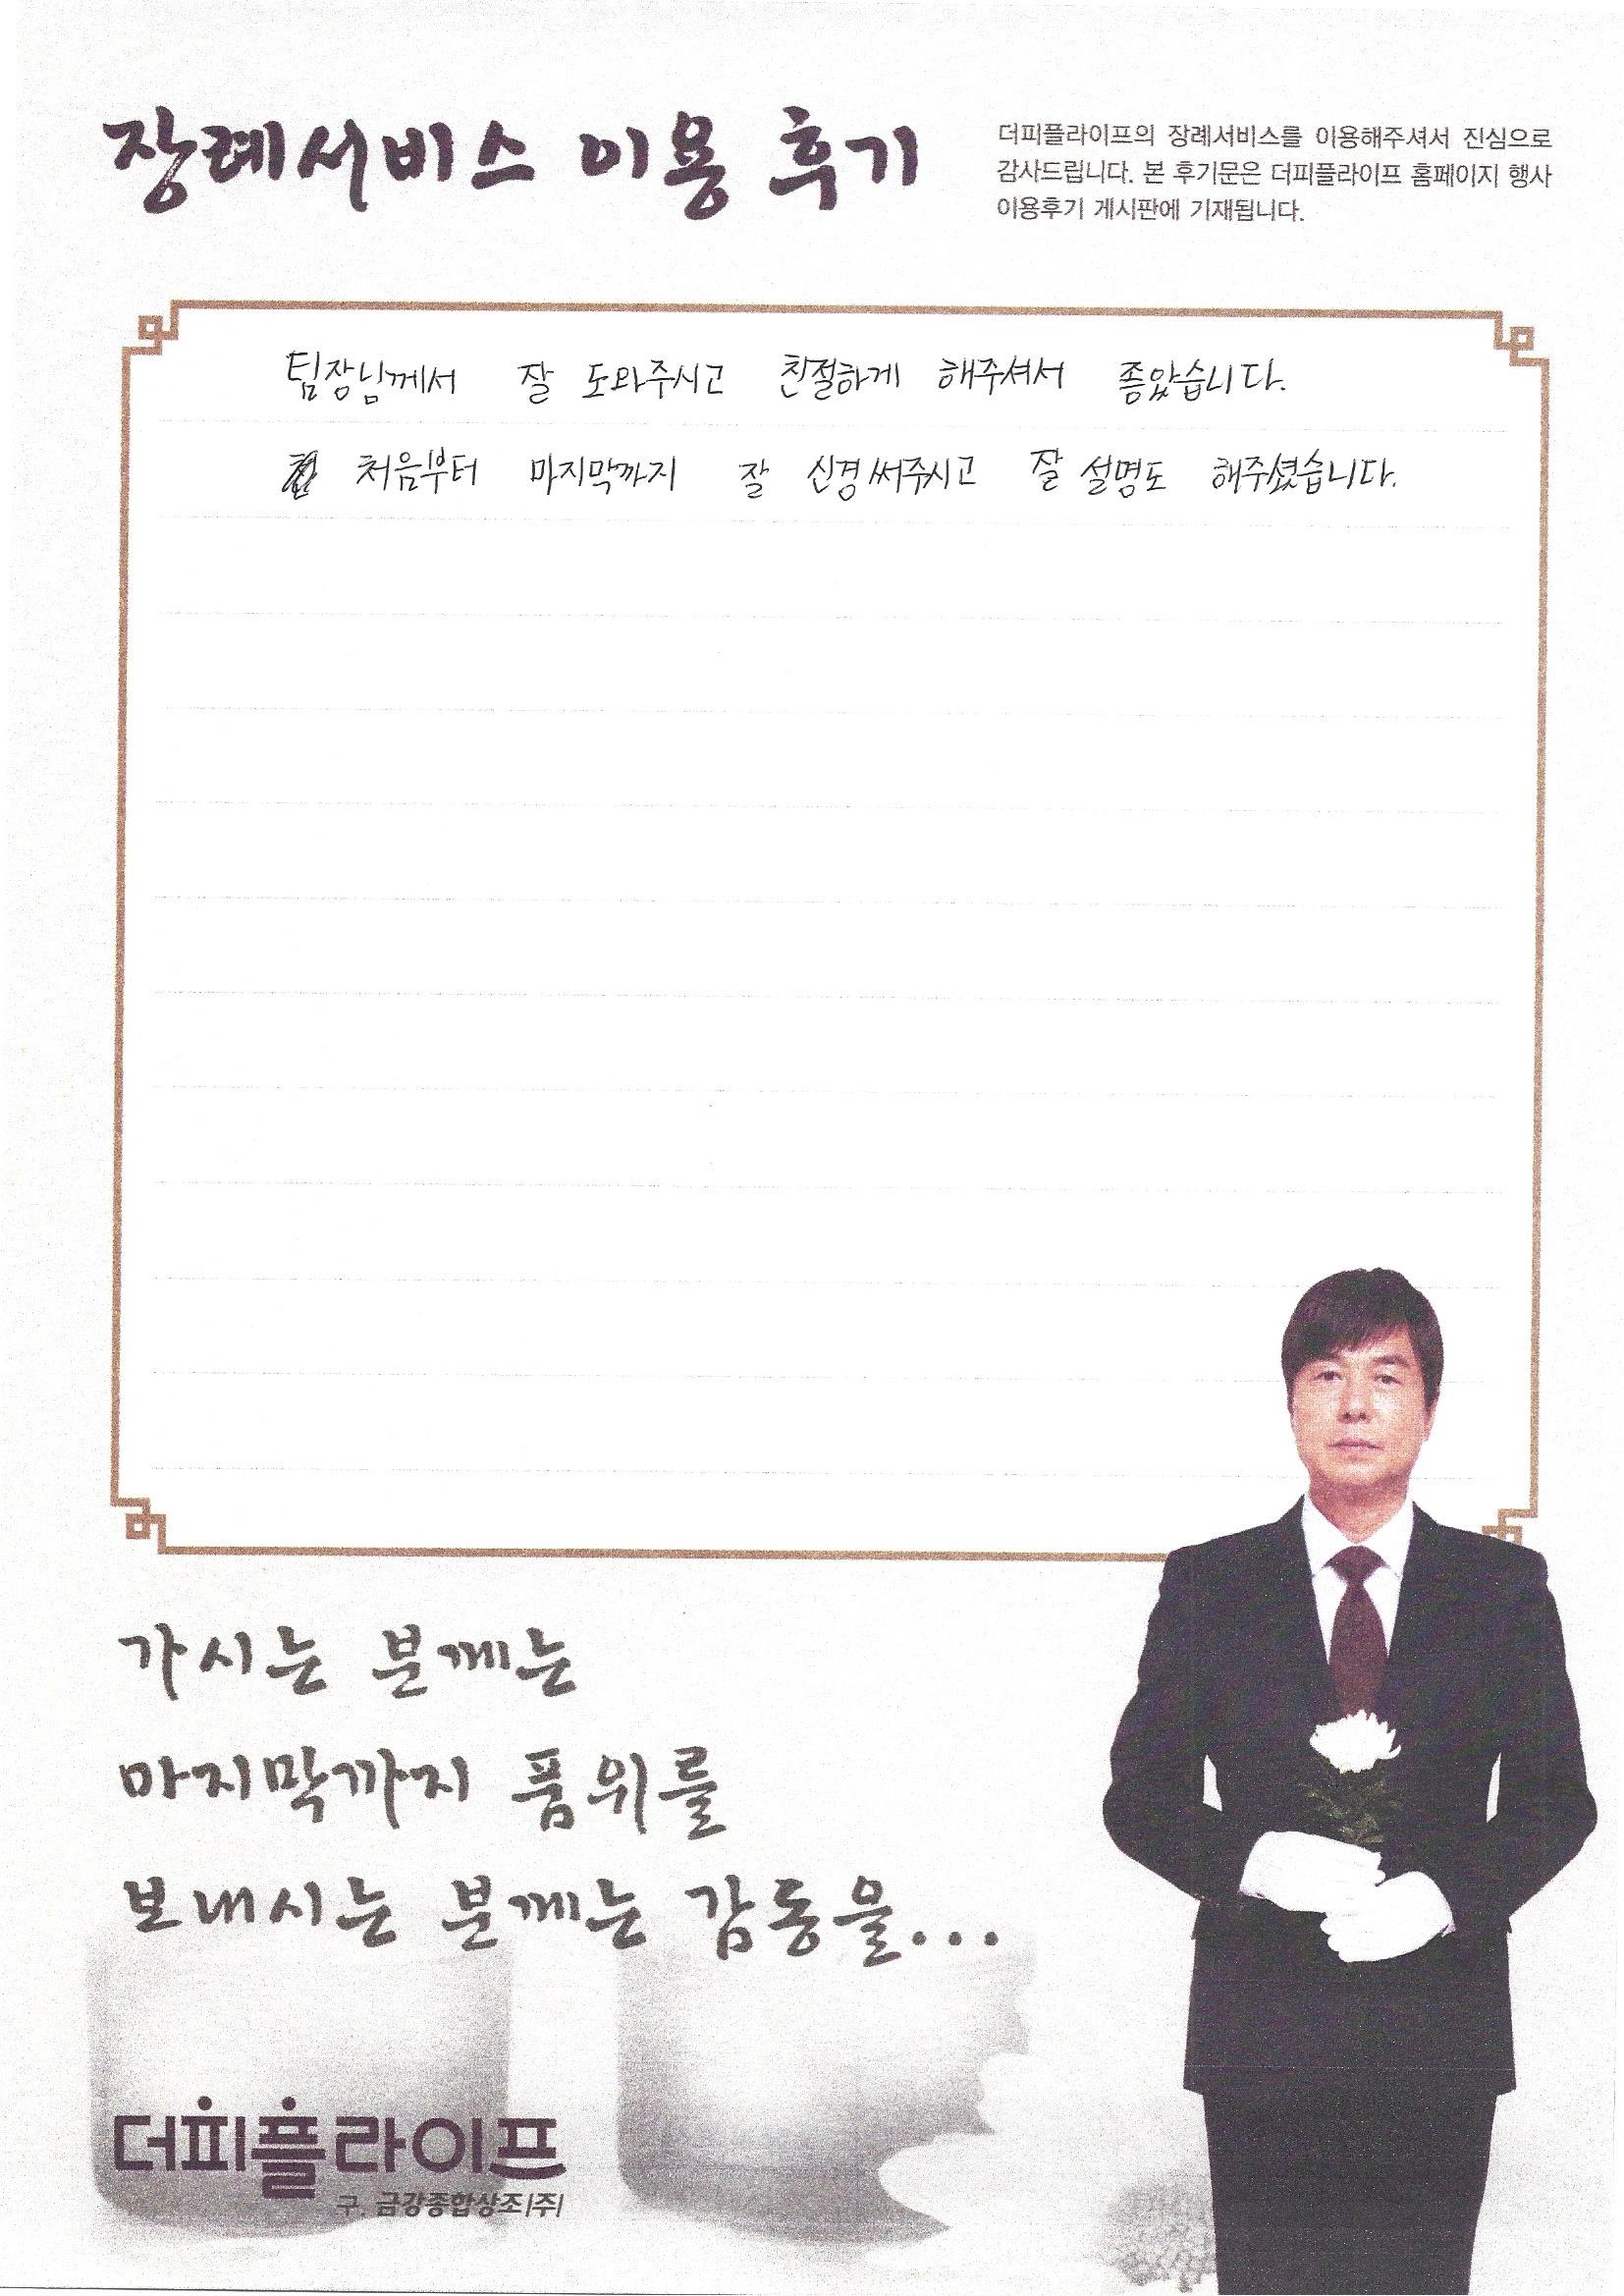 장례서비스 이용 후기
더피플라이프의 장례서비스를 이용해주셔서 진심으로
감사드립니다. 본 후기문은 더피플라이프 홈페이지 행사
이용후기 게시판에 기재됩니다.
팀장님께서 잘 도와주시고 친절하게 해주셔서 좋았습니다.
처음부터 마지막까지 잘 신경써주시고 잘 설명도 해주셨습니다.
가시는 분께는
마지막까지 품위를
보내시는 분께는 감동을...
더피플라이프
구. 금강종합상조(주)